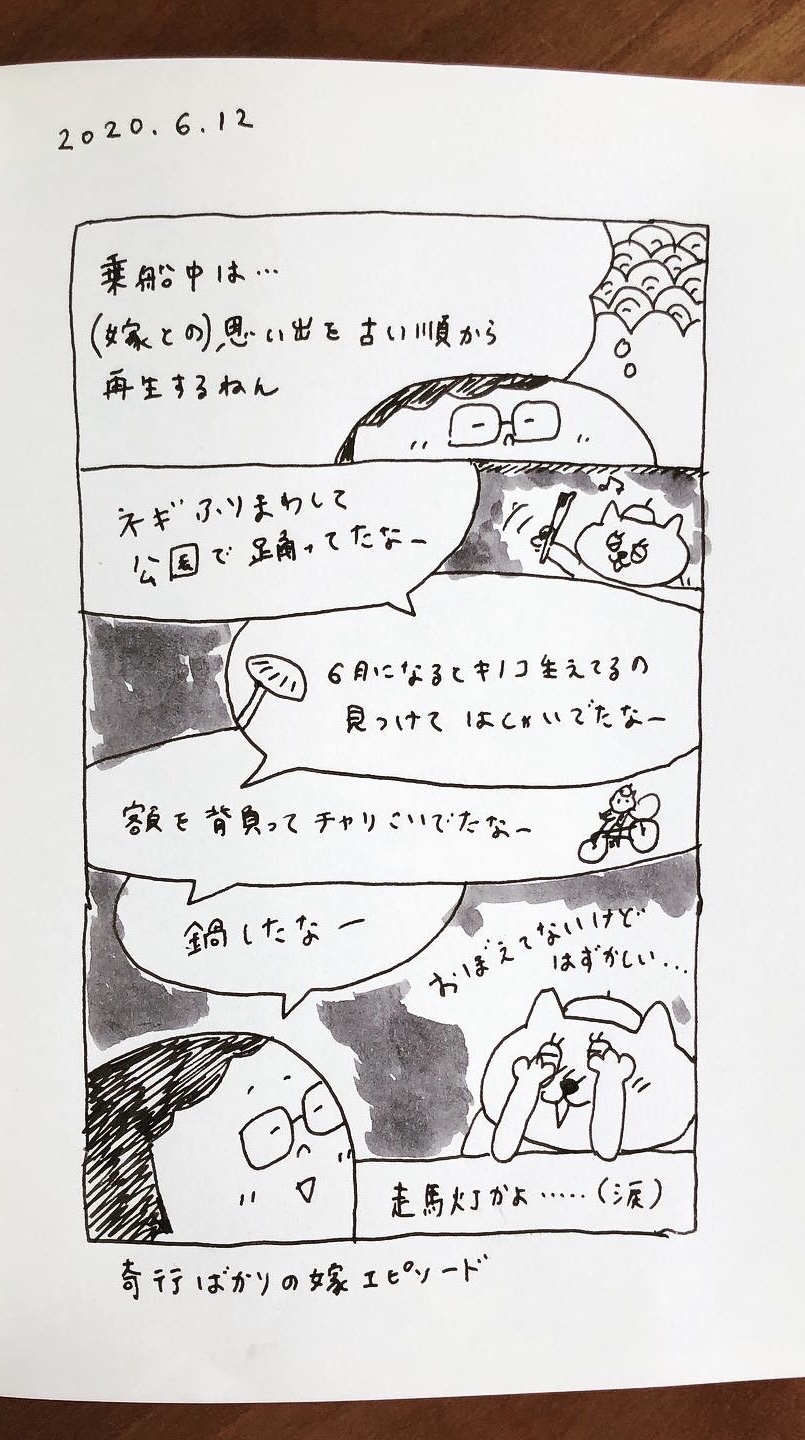 2020.6.12
乗船中は…
(嫁との)思い出を古い順から
再生するねん
ネギふりまわして
公園で踊ってたなー
6月になるとキノコ生えてるの
見つけてはしゃいでたなー
額を背負ってチャリこいでたなー
鍋したなー
おぼえてないけど
はずかしい...
走馬灯かよ……(涙)
奇行ばかりの嫁エピソード